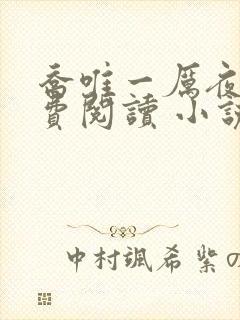 喬唯一厲夜
費閱讀 小說
中村颯希 紫の